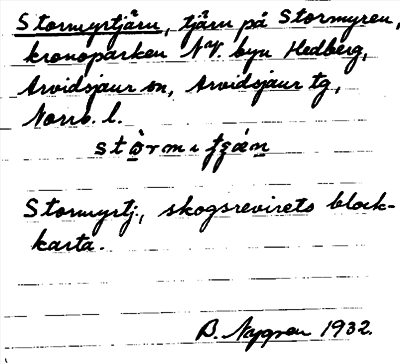 Stormyrtjärn, tjärn på Stormyren,
kronoparken NV. byn Hedberg,
Arvidsjaur sn, Arvidsjaur tg,
Norrb. l.
Stormyrtj., skogsrevirets block-
karta.
B. Nygren 1932.